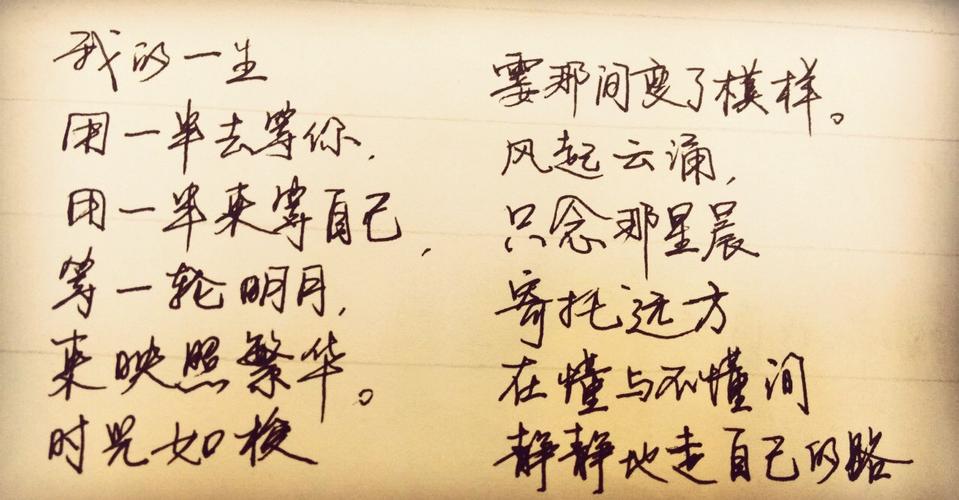 我的一生
用一半去等你,
用一半来等自己,
等一轮明月,
来映照繁华。
时光如梭
霎那间变了模样。
风起云涌,
只念那星晨
寄托远方
在懂与不懂间
静静地走自己的路